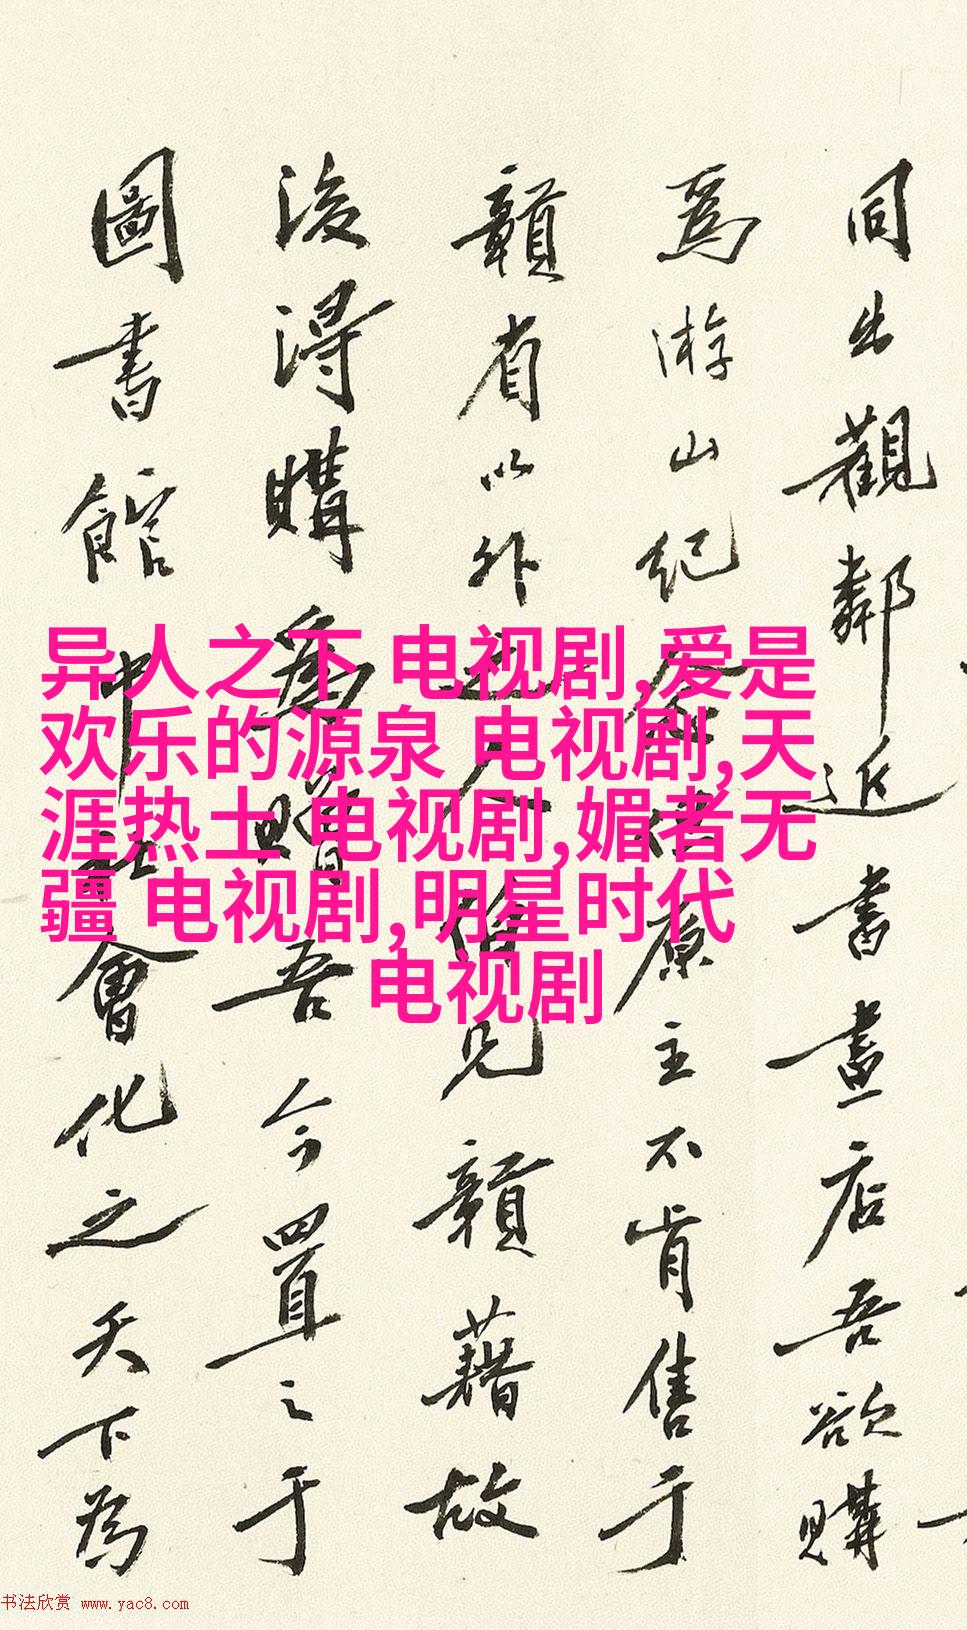 同出觀鄰近書畫店吾欲購
為游山紀
原主不肯售于
贛省以外
見贛藉故
後得購為贈吾今置之于
圖書館中社會化之天下為
异人之下 电视剧,爱是
欢乐的源泉 电视剧,天
涯热土 电视剧,媚者无
疆 电视剧,明星时代
电视剧
书法欣赏 www.yac8.com